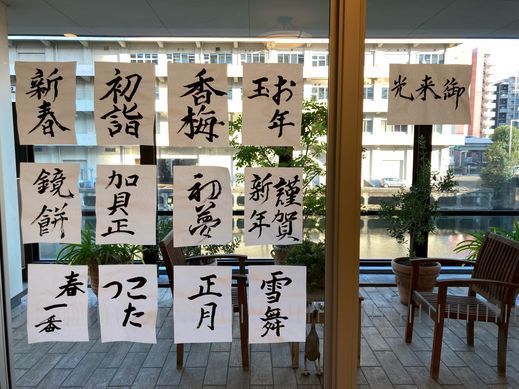 新春
初詣
香梅
お年
玉
御来光
鏡餅
賀正
初夢
謹賀
新年
春
一番
こた
つ
正月
雪舞